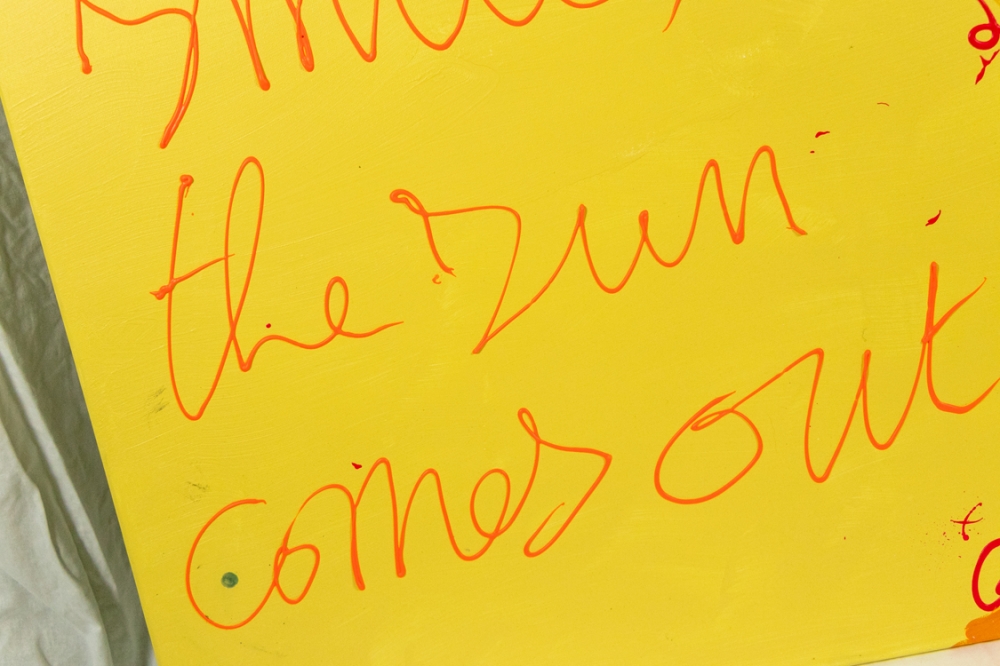 the sun
comes out